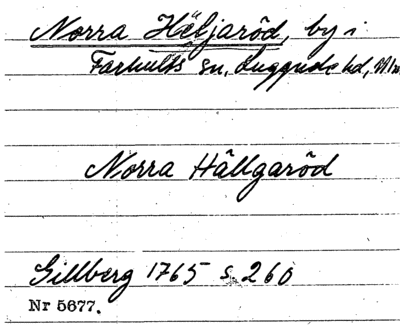 Norra Häljaröd, by i
Farhults sn, Luggude hd, Mlm
Norra Hällgaröd
Gillberg 1765 s. 260
Nr 5677.